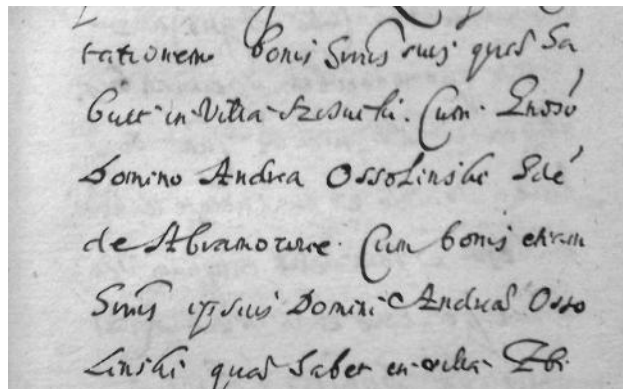 tationem bonis Suis suis quas ha
buit in Villa Cum Gnoso
Domino Andrea Ossolinski
de Abramowice. Cum bonis etiam
ipsius Domini Andreas Osso
linski quas habet in villa Zbi